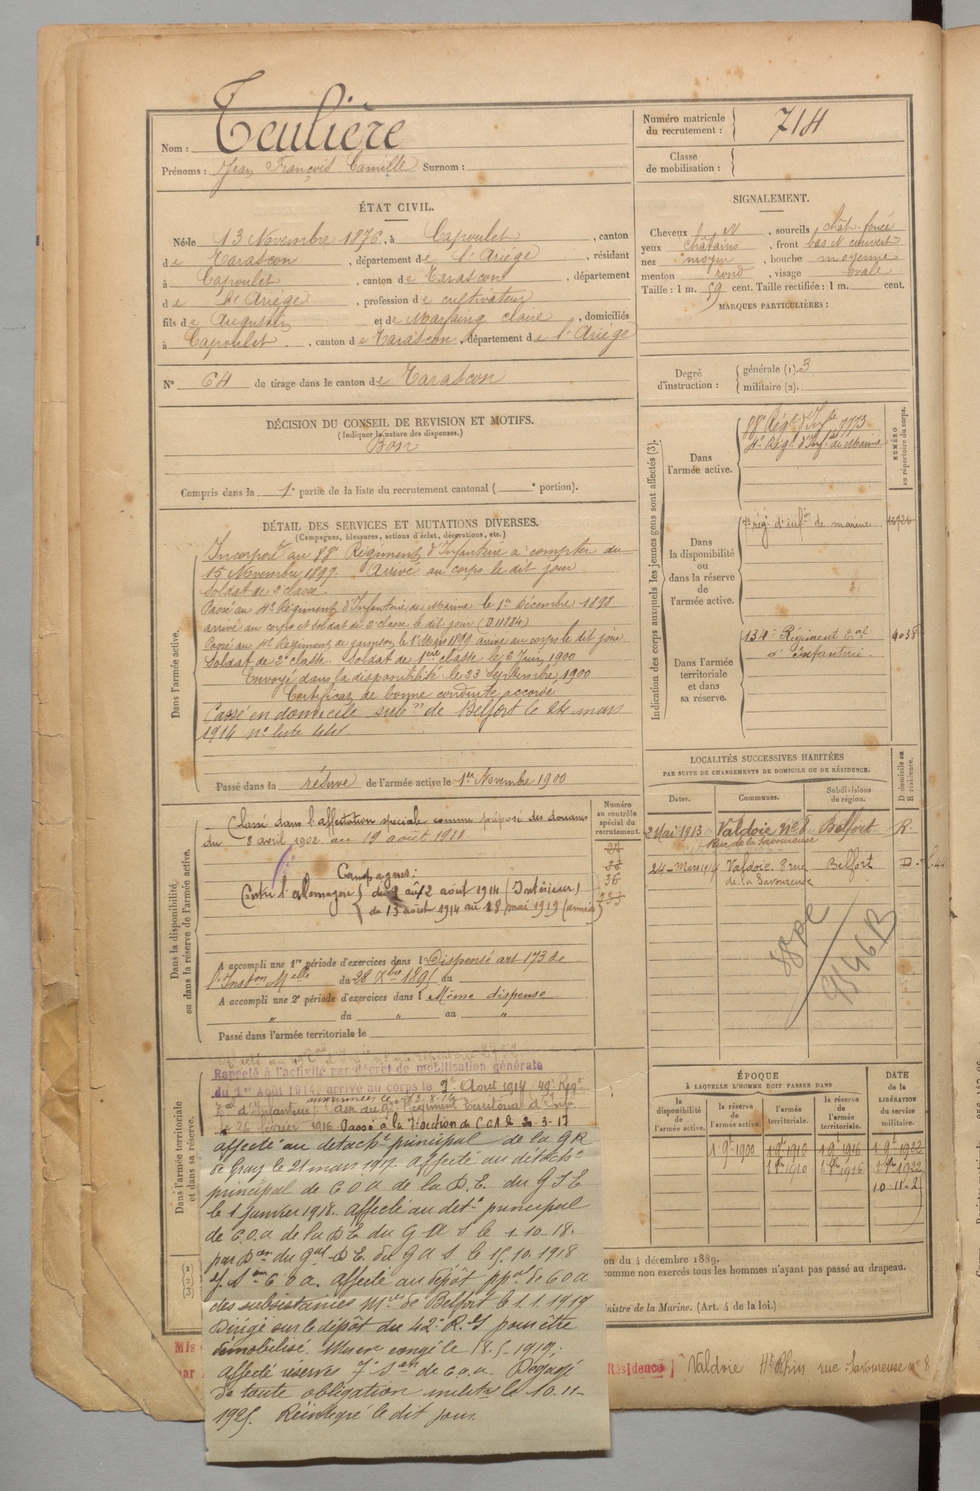 Nom : Teulière
Prénoms : Jean François Camille Surnom :
ÉTAT CIVIL.
Né le 13 Novembre 1876, à Capoulet, canton
de Tarascon, département de l'Ariège, résidant
à Capoulet, canton de Tarascon, département
de l'Ariège, profession de cultivateur
fils de Augustin et de Marfaing Claire, domiciliés
à Capoulet, canton de Tarascon, département de l'Ariège
N° 64 de tirage dans le canton de Tarascon
DÉCISION DU CONSEIL DE REVISION ET MOTIFS.
(Indiquer la nature des dispenses.)
Bon
Compris dans la 1e partie de la liste du recrutement cantonal ( e portion).
DÉTAIL DES SERVICES ET MUTATIONS DIVERSES.
(Campagnes, blessures, actions d'éclat, décorations, etc.)
Dans l'armée active.
Incorporé au 88e Régiment d'Infanterie à compter du
15 Novembre 1897. Arrivé au corps le dit jour
Soldat de 2e classe.
Passé au 4e Régiment d'Infanterie de Marine le 1er Décembre 1898
arrivé au corps et soldat de 2e classe le dit jour (D11884)
Passé au 4e Régiment de garnison le 1er Mars 1899 arrivé au corps le dit jour
Soldat de 2e classe. Soldat de 1ère classe le 6 Juin 1900
Envoyé dans la disponibilité le 23 Septembre 1900
Certificat de bonne conduite accordé
Passé en domicile subon de Belfort le 24 mars
1914 no liste
Passé dans la réserve de l'armée active le 1er Novembre 1900
Dans la disponibilité
ou dans la réserve de l'armée active.
Numéro
au contrôle
spécial du
recrutement.
Classé dans l'affectation spéciale comme préposé des douanes
du 8 avril 1902 au 19 août 1911
36
Campagnes:
Contre l'allemagne du 2 au 12 août 1914 (Intérieur)
du 13 août 1914 au 18 mai 1919 (armées)
A accompli une 1re période d'exercices dans l Dispensé art 173 de
l'Inston Melle du 28 Xbre 1895 au
A accompli une 2e période d'exercices dans l Même dispense
" du " au "
Passé dans l'armée territoriale le
Dans l'armée territoriale
et dans sa réserve.
Rappelé à l'activité par décret de mobilisation générale
du 1er Août 1914, arrive au corps le 3 Août 1914 49e Régt
tal d'Infanterie aux armées le 13-8-14
le 26 février 1916 Passé à la 7e section de C.O.A. le 20-3-17
affecté au détacht principal de la G R
de Gray le 21 mars 1917. Affecté au détacht
principal de C O A de la D.E. du G J E
le 1 janvier 1918. affecté au dett principal
de C.O.A de la D E du G A S le 1.10.18.
par Don du Gal D E du G A S le 15.10.1918
Son C O A. affecté au dépôt ppal de C O A
des subsistances Mres de Belfort le 1.1.1919
Dirigé sur le dépôt du 42e R.I pour être
démobilisé. Mis en congé le 18.5.1919.
affecté réserve 7e Son de c.o.a. Dégagé
de toute obligation milit le 10.11-
1925. Réintégré le dit jour.
Numéro matricule
du recrutement : 714
Classe
de mobilisation :
SIGNALEMENT.
Cheveux N, sourcils chât foncé
yeux châtains, front bas N couvert
nez moyen, bouche moyenne
menton rond, visage ovale
Taille : 1 m. 59 cent. Taille rectifiée : 1 m. cent.
MARQUES PARTICULIÈRES :
Degré
d'instruction :
générale (1). 3
militaire (2).
Indication des corps auxquels les jeunes gens sont affectés (3).
NUMÉRO
au répertoire du corps.
Dans
l'armée active.
88e Régt d'Infie 7773
4e Régt d'Infie de Marine
Dans
la disponibilité
ou
dans la réserve
de
l'armée active.
7e rég. d'infie de marine 16726
Dans l'armée
territoriale
et dans
sa réserve.
134e Régiment tal
d'Infanterie. 4038
LOCALITÉS SUCCESSIVES HABITÉES
PAR SUITE DE CHANGEMENTS DE DOMICILE OU DE RÉSIDENCE.
Dates. Communes. Subdivisions
de région. D domicile ou
R résidence.
2 Mai 1913 Valdoie no 8 Belfort R.
Rue de la Savoureuse
24-Mars 1914 Valdoie. 8 rue Belfort D
de la Savoureuse
ÉPOQUE
À LAQUELLE L'HOMME DOIT PASSER DANS
DATE
de la
LIBÉRATION
du service
militaire.
la
disponibilité
de
l'armée active.
la réserve
de
l'armée active.
l'armée
territoriale.
la réserve
de l'armée
territoriale.
1 9bre 1900 1 9bre 1910 1 9bre 1916 1 9bre 1922
1 8bre 1910 1 8bre 1916 1 8bre 1922
10-11-25
on du 4 décembre 1889.
comme non exercés tous les hommes n'ayant pas passé au drapeau.
nistre de la Marine. (Art. 4 de la loi.)
Mis
par
Résidence Valdoie Ht Rhin rue Savoureuse no 8